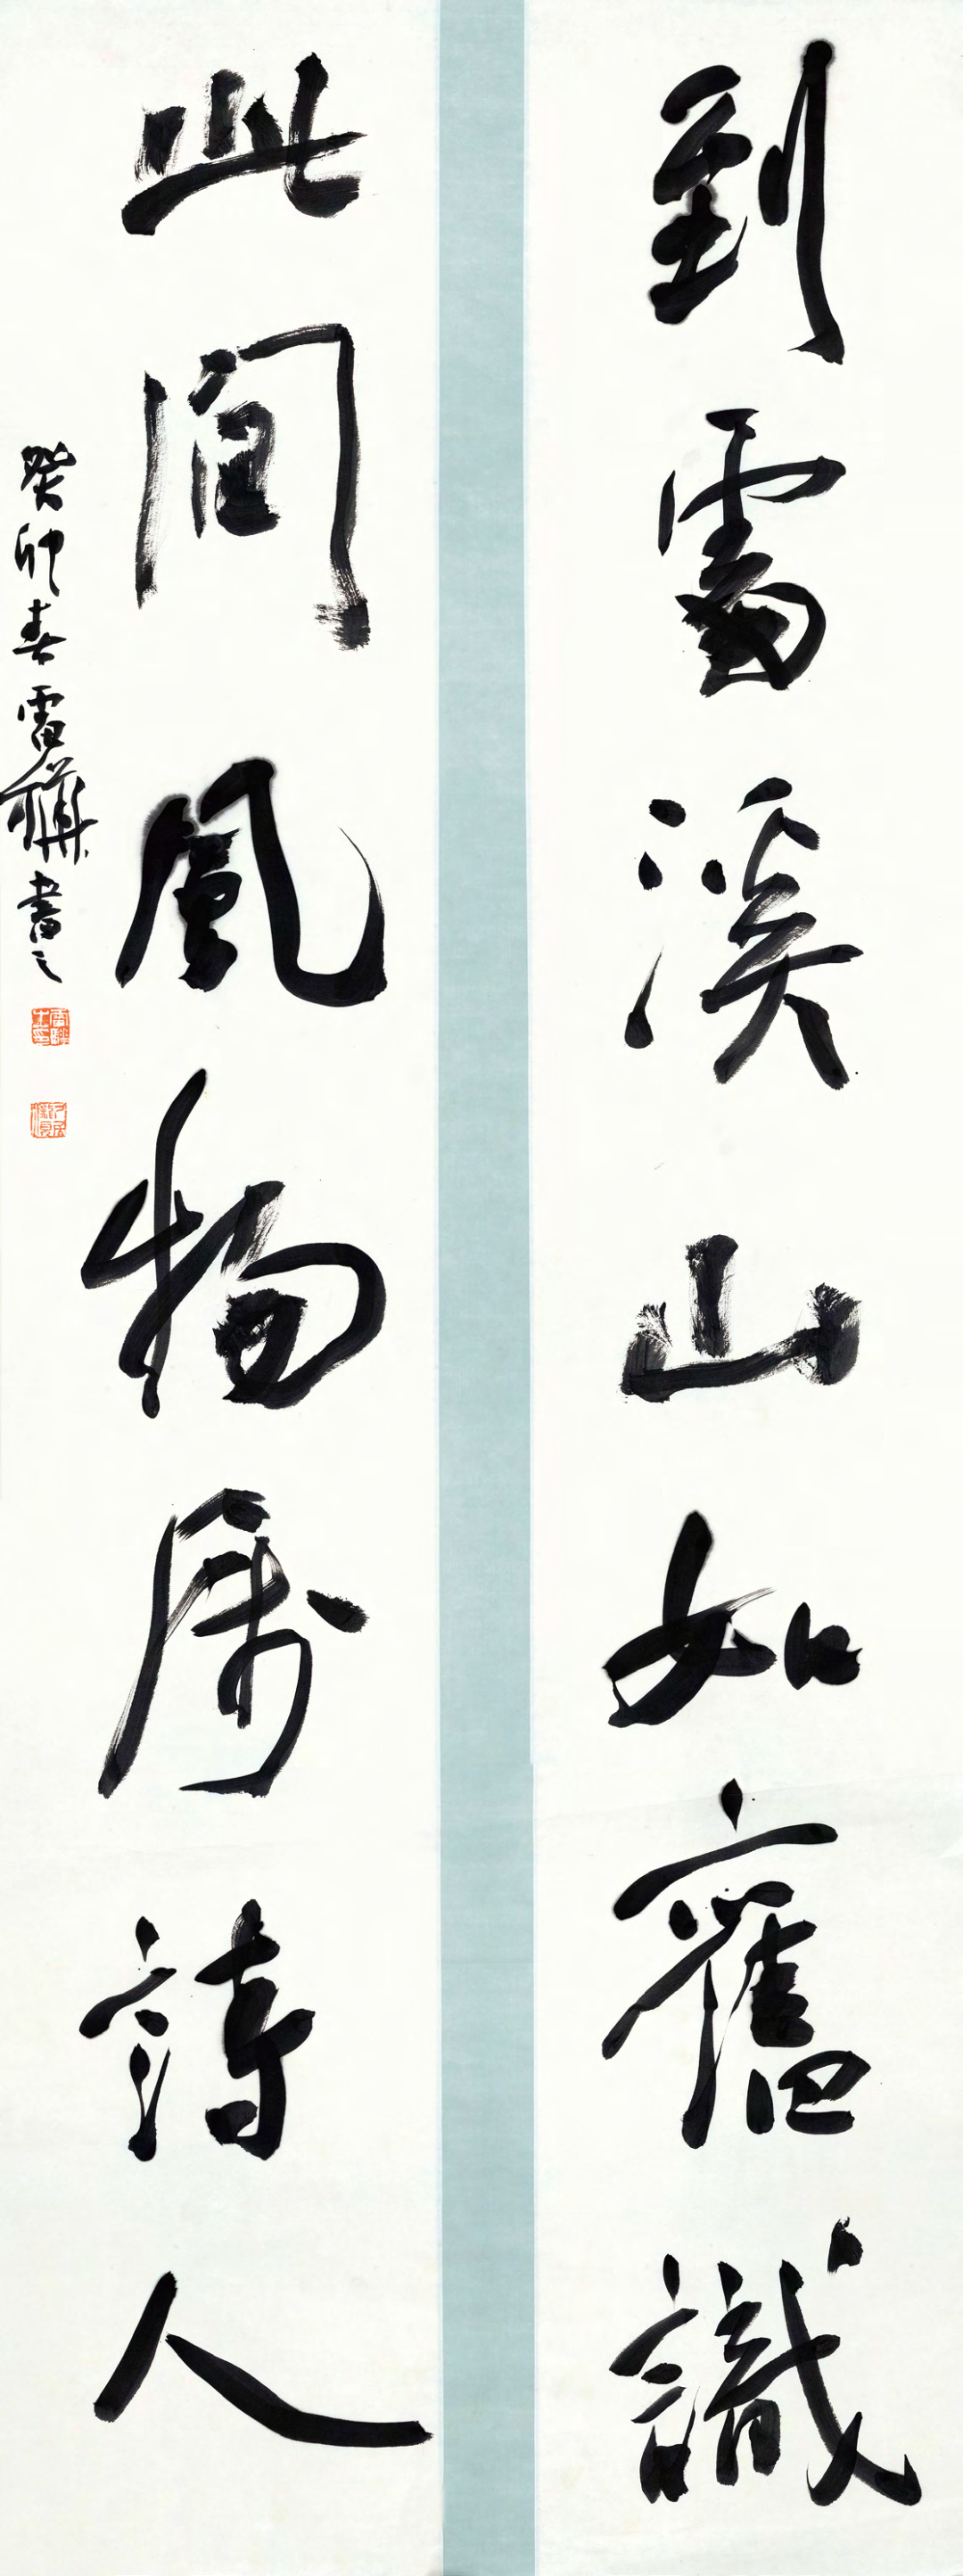 到處溪山如舊識
此間風物屬詩人
癸卯春雷書之